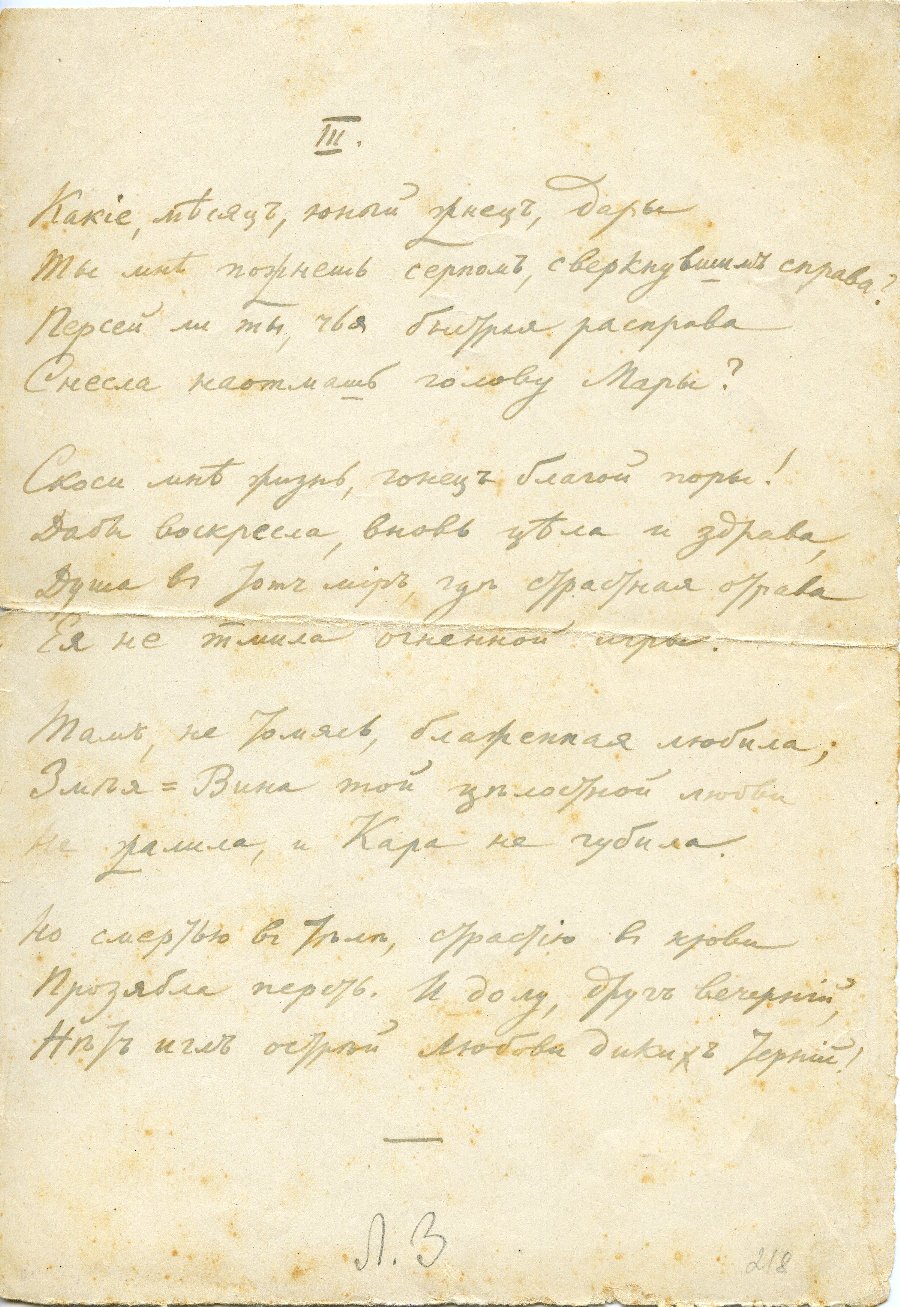 III.
Какіе, мѣсяцъ, юный жнецъ, дары
Ты мнѣ пожнешь серпомъ, сверкнувшимъ справа?
Персей ли ты, чья быстрая расправа
Снесла наотмашь голову Мары?
Скоси мнѣ жизнь, гонецъ благой поры!
Дабы воскресла, вновь цѣла и здрава,
Душа въ тотъ міръ, гдѣ страстная отрава
Ея не тмила огненной игры.
Тамъ, не томясь, блаженная любила;
Змѣя=Вина той цѣлостной любви
Не жалила, и Кара не губила.
Но смертью въ тѣлѣ, страстію въ крови
Прозябла персть. И долу, другъ вечерній,
Нѣтъ иглъ острѣй любови дикихъ терній!
Л. З
218